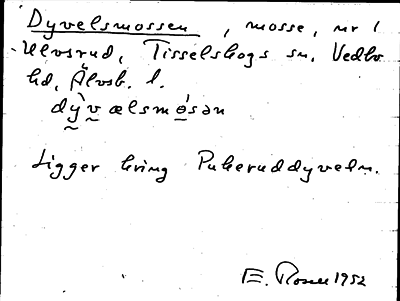 Dyvelsmossen, mosse, nr 1
Ulvsrud, Tisselskogs sn, Vedbo
hd, Älvsb. l.
dyvælsmosən
Ligger kring Pukeruddyveln.
E. Rosell 1952